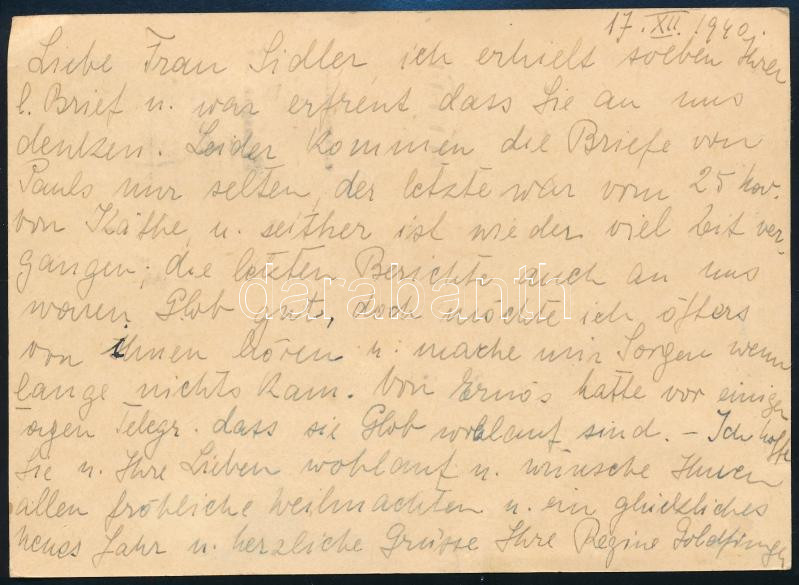 17. XII. 1940.
Liebe Frau Sidler, ich erhielt soeben Ihren
l. Brief u. war erfreut dass Sie an uns
denken. Leider kommen die Briefe von
Pauls nur selten, der letzte war vom 25 Nov.
von Käthe, u. seither ist wieder viel Zeit ver-
gangen; die letzten Berichte auch an uns
waren Glob gut, doch möchte ich öfters
von ihnen hören u. mache mir Sorgen wenn
lange nichts kam. Von Ernös hatte vor einigen
tagen Telegr. dass sie Glob wohlauf sind. – Ich hoffe
Sie u. Ihre Lieben wohlauf u. wünsche Ihnen
allen fröhliche Weihnachten u. ein glückliches
neues Jahr u. herzliche Grüsse Ihre Regine Goldfinger
darabanth.com